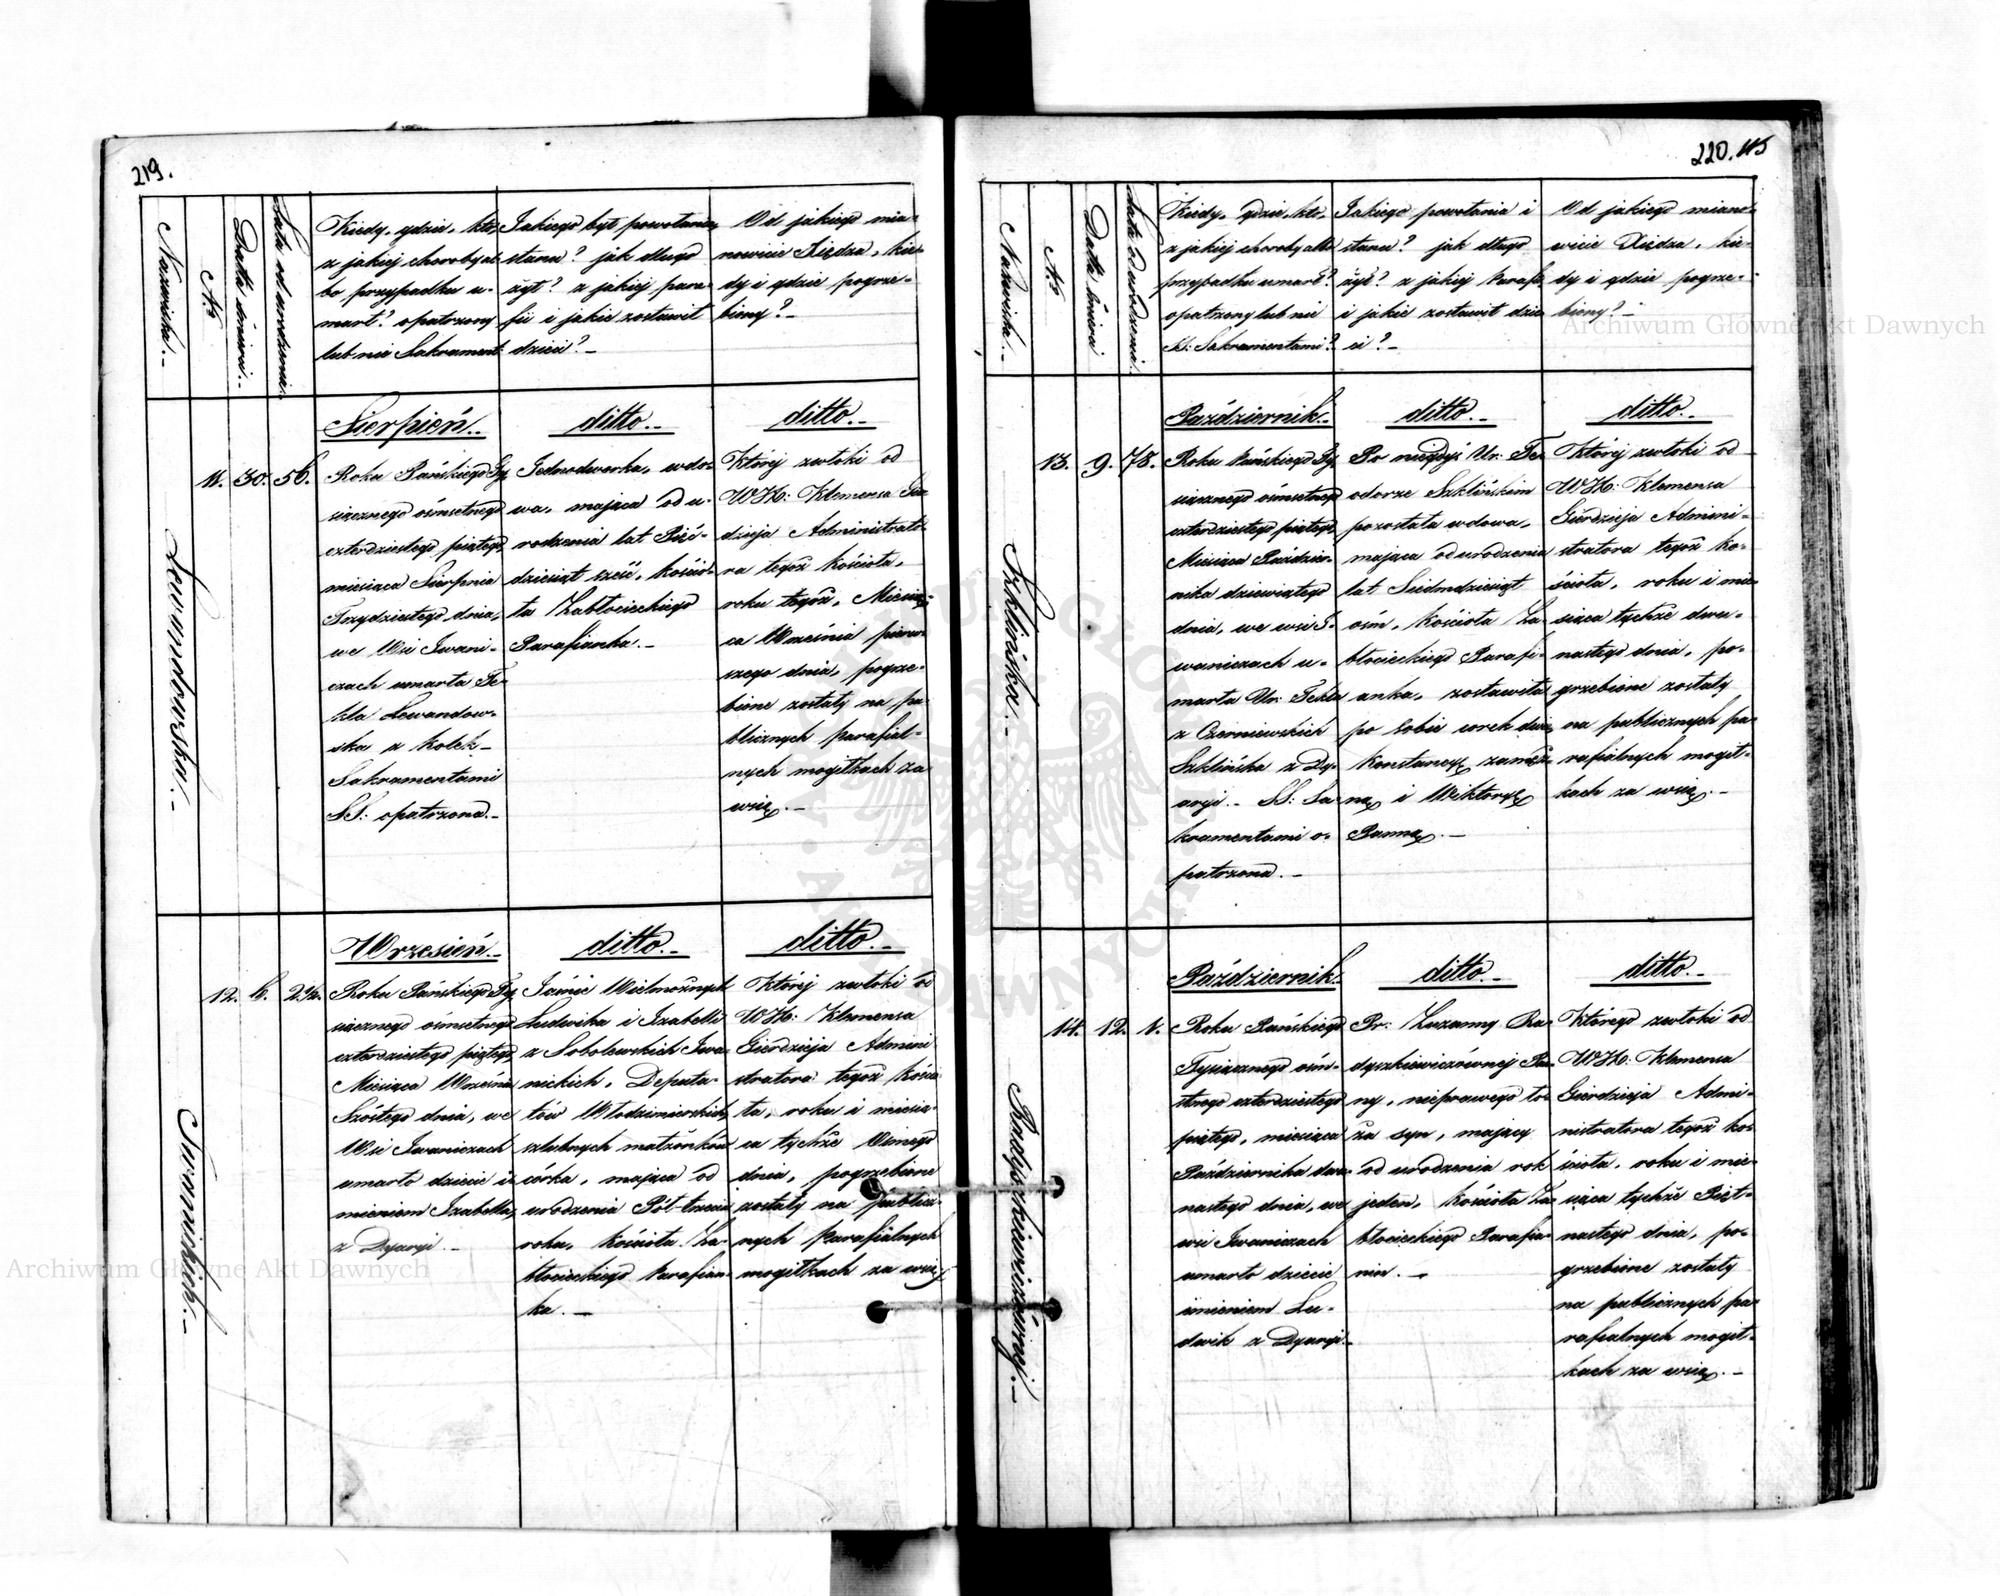 219.
Nazwiska.
Nr
Datta śmierci.
Lata od urodzenia.
Kiedy, gdzie, kto,
z jakiej choroby al
bo przypadku u-
marł? opatrzony
lub nie Sakrament.
Jakiego był powołania,
stanu? jak długo
żył? z jakiej para-
fii i jakie zostawił
dzieci?
Od jakiego mia-
nowicie Xiędza, kie-
dy i gdzie pogrze-
biony?
Lewandowska.
11. 30. 56.
Sierpień.
Roku Pańskiego Ty-
siącznego ośmsetnego
czterdziestego piątego
miesiąca Sierpnia
Trzydziestego dnia,
we Wsi Iwani-
czach umarła Te-
kla Lewandow-
ska z kolek-
Sakramentami
SS: opatrzona.
ditto.
Jednodworka, wdo-
wa, mająca od u-
rodzenia lat Pięć-
dziesiąt sześć, kościo-
ła Zabłocieckiego
Parafianka.
ditto.
Której zwłoki od
WX: Klemensa Gier
dzieja Administrato-
ra tegoż kościoła,
roku tegoż, Miesią-
ca Września pierw-
szego dnia, pogrze-
bione zostały na pu-
blicznych parafial-
nych mogiłkach za
wsią.
Iwanickich.
12. 6. 2½.
Wrzesień.
Roku Pańskiego Ty-
siącznego ośmsetnego
czterdziestego piątego
Miesiąca Września
Szóstego dnia, we
Wsi Iwaniczach
umarło dziecie i-
mieniem Izabella,
z Dyaryi.
ditto.
Jaśnie Wielmożnych
Ludwika i Izabelli
z Sobolewskich Iwa-
nickich, Deputa-
tów Włodzimierskich,
szlubnych małżonków
córka, mająca od
urodzenia Pół-trzecia
roku, kościoła Za-
błocieckiego Parafian-
ka.
ditto.
Której zwłoki od
WX: Klemensa
Gierdzieja Admini
stratora tegoż kościo-
ła, roku i miesią-
ca tychże Ósmego
dnia, pogrzebione
zostały na publicz-
nych parafialnych
mogiłkach za wsią.
220. 115
Nazwiska.
Nr
Datta śmierci
Lata od urodzenia.
Kiedy, gdzie, kto,
z jakiej choroby albo
przypadku umarł?
opatrzony lub nie
SS: Sakramentami?
Jakiego powołania i
stanu? jak długo
żył? z jakiej Parafii
i jakie zostawił dzie
ci?
Od jakiego miano-
wicie Xiędza, kie-
dy i gdzie pogrze-
biony?
Szklińska.
13. 9. 78.
Październik.
Roku Pańskiego Ty-
siącznego ośmsetnego
czterdziestego piątego
Miesiąca Paździer-
nika dziewiątego
dnia, we wsi I-
waniczach u-
marła Ur: Tekla
z Czerniewskich
Szklińska z Dy-
aryi. SS: Sa-
kramentami o-
patrzona.
ditto.
Po niegdyś Ur: Te-
odorze Szklińskim
pozostała wdowa,
mająca od urodzenia
lat Siedmdziesiąt
ośm, kościoła Za-
błocieckiego Parafi-
anka, zostawiła
po sobie córek dwie,
Konstancyę zamęż-
ną i Wiktoryę
Pannę.
ditto.
Której zwłoki od
WX: Klemensa
Gierdzieja Admini-
stratora tegoż ko-
ścioła, roku i mie-
siąca tychże dwu-
nastego dnia, po-
grzebione zostały
na publicznych pa-
rafialnych mogił-
kach za wsią.
Radyszkiewiczównej.
14. 12. 1.
Październik.
Roku Pańskiego
Tysiącznego ośm-
setnego czterdziestego
piątego, miesiąca
Października dwu-
nastego dnia, we
wsi Iwaniczach
umarło dziecie
imieniem Lu-
dwik z Dyaryi.
ditto.
Pr: Zuzanny Ra-
dyszkiewiczównej Pan-
ny, nieprawego ło-
ża syn, mający
od urodzenia rok
jeden, kościoła Za-
błocieckiego Parafia-
nin.
ditto.
Którego zwłoki od
WX: Klemensa
Gierdzieja Admi-
nistratora tegoż ko-
ścioła, roku i mie-
siąca tychże Pięt-
nastego dnia, po-
grzebione zostały
na publicznych pa-
rafialnych mogił-
kach za wsią.
Archiwum Główne Akt Dawnych
Archiwum Główne Akt Dawnych